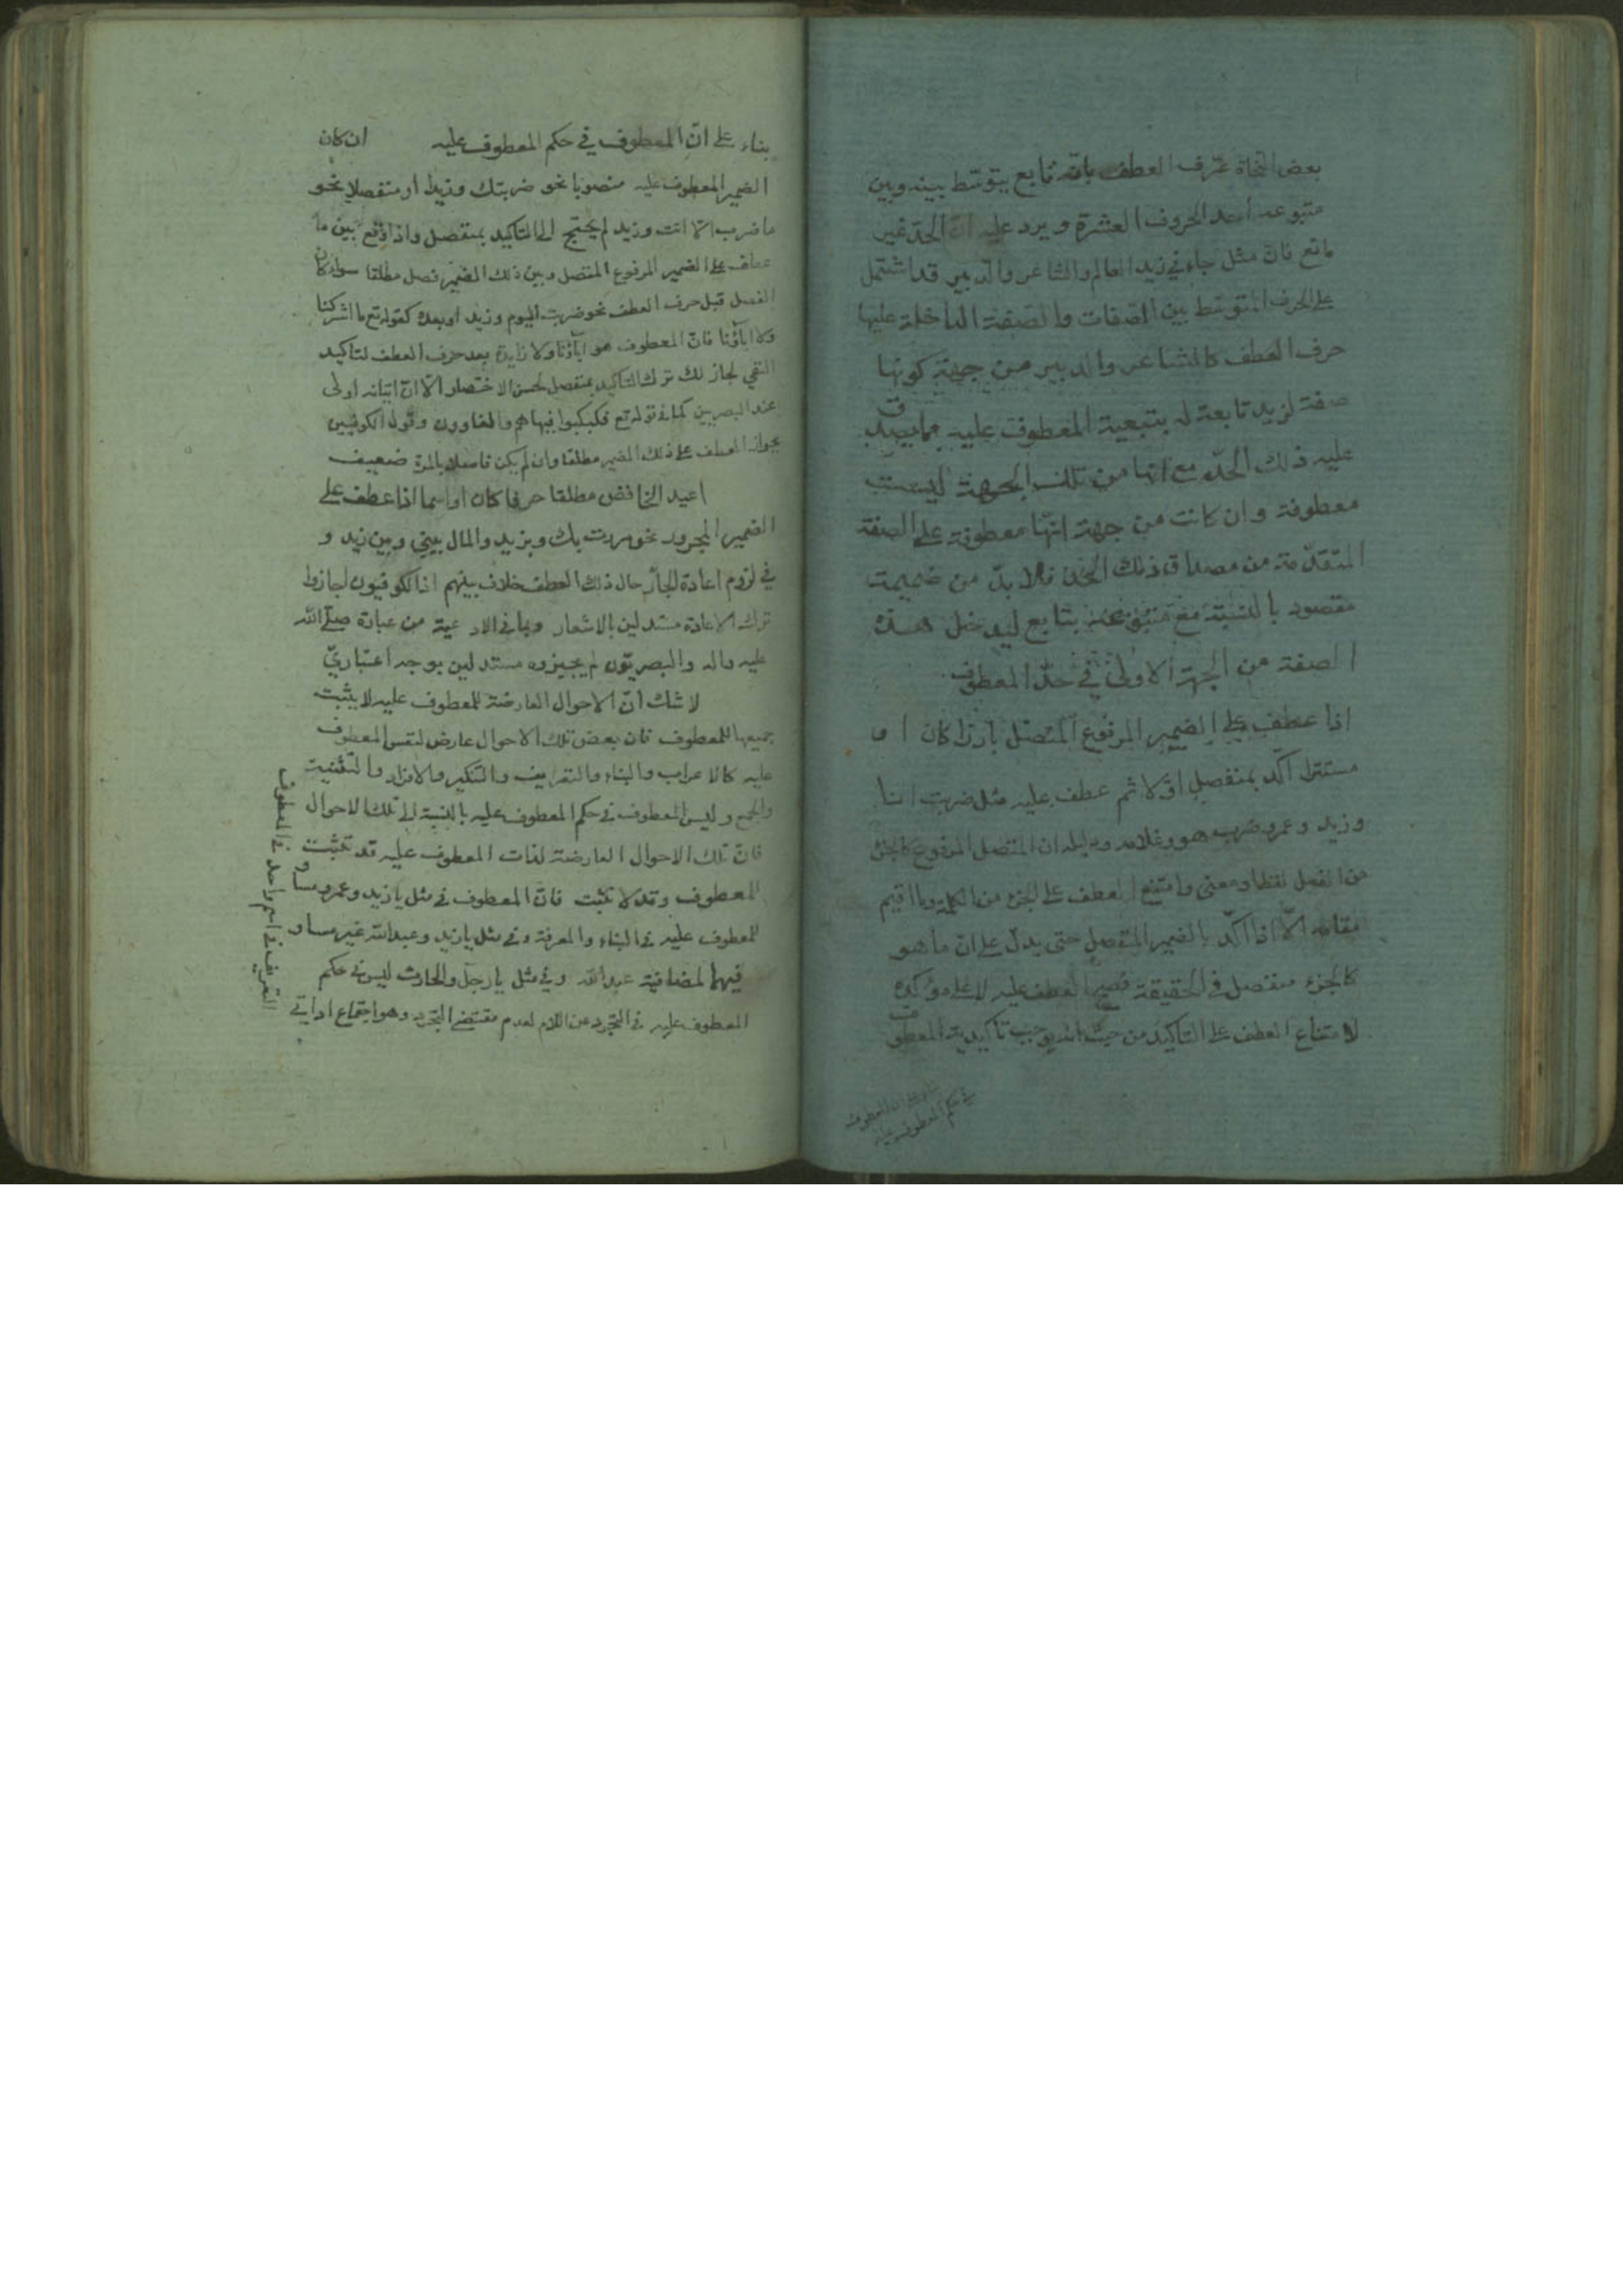 بعض النحاة عرّف العطف بانّه تابع يتوسّط بينه وبين
متبوعه احد الحروف العشرة و يرد عليه انّ الحدّ غير
مانع فانّ مثل جاءني زيد العالم والشاعر والدبير قد اشتمل
على الحرف المتوسّط بين الصّفات والصفة الداخلة عليها
حرف العطف كالشاعر والدبير من جهة كونها
صفة لزيد تابعة له بتبعية المعطوف عليه مما يصدق
عليه ذلك الحدّ مع انها من تلك الجهة ليست
معطوفة وان كانت من جهة انّها معطوفة على الصفة
المتقدّمة من مصداق ذلك الحدّ فلا بدّ من ضميمة
مقصود بالنسبة مع متبوعه بتابع ليدخل هذه
الصفة من الجهة الاولى في حدّ المعطوف
اذا عطف على الضمير المرفوع المتّصل بارزا كان او
مستترا اكّد بمنفصل اوّلا ثم عطف عليه مثل ضربت انا
وزيد وعمرو ضرب هو وغلامه ودليله ان المتصل المرفوع كالجزء
من الفعل لفظا ومعنى وامتنع العطف على الجزء من الكلمة وما اقيم
مقامه الّا اذا اكّد بالضمير المنفصل حتى يدلّ على انّ ما هو
كالجزء منفصل في الحقيقة فصير العطف عليه لا على مؤكده
لامتناع العطف على التاكيد من حيث انّه يوجب تاكيدية المعطوف
بناء على ان المعطوف
في حكم المعطوف عليه
بناء على انّ المعطوف في حكم المعطوف عليه ان كان
الضمير المعطوف عليه منصوبا نحو ضربتك وزيدا او منفصلا نحو
ما ضرب الّا انت وزيد لم يحتج الى التاكيد بمنفصل واذا وقع بين ما
عطف على الضمير المرفوع المتصل وبين ذلك الضمير فصل مطلقا سواء كان
الفصل قبل حرف العطف نحو ضربت اليوم وزيد او بعده كقوله تع ما اشركنا
ولا آباؤنا فانّ المعطوف هو آباؤنا ولا زايدة بعد حرف العطف لتاكيد
النفي لجاز لك ترك التاكيد بمنفصل لحسن الاختصار الّا انّ اتيانه اولى
عند البصريين كما في قوله تع فكبكبوا فيها هم والغاوون وقول الكوفيين
بجواز العطف على ذلك الضمير مطلقا وان لم يكن فاصلا بالمرة ضعيف
اعيد الخافض مطلقا حرفا كان او اسما اذا عطف على
الضمير المجرور نحو مررت بك وبزيد والمال بيني وبين زيد و
في لزوم اعادة الجارّ حال ذلك العطف خلاف بينهم اذ الكوفيون اجازوا
ترك الاعادة مستدلين بالاشعار وبما في الادعية من عبارة صلّى الله
عليه واله والبصريّون لم يجيزوه مستدلين بوجه اعتباريّ
لا شك انّ الاحوال العارضة للمعطوف عليه لا يثبت
جميعها للمعطوف فان بعض تلك الاحوال عارض لنفس المعطوف
عليه كالاعراب والبناء والتعريف والتنكير والافراد والتّثنية
والجمع وليس المعطوف في حكم المعطوف عليه بالنسبة الى تلك الاحوال
فانّ تلك الاحوال العارضة لذات المعطوف عليه قد تثبت
للمعطوف وقد لا تثبت فانّ المعطوف في مثل يا زيد وعمرو مساو
للمعطوف عليه في البناء والمعرفة وفي مثل يا زيد وعبدالله غير مساو
فيهما لمضافية عبدالله وفي مثل يا رجل والحارث ليس في حكم
المعطوف عليه في التجرد عن اللام لعدم مقتضى التجرد وهو اجتماع اداتي
التعريف في اسم واحد في المعطوف